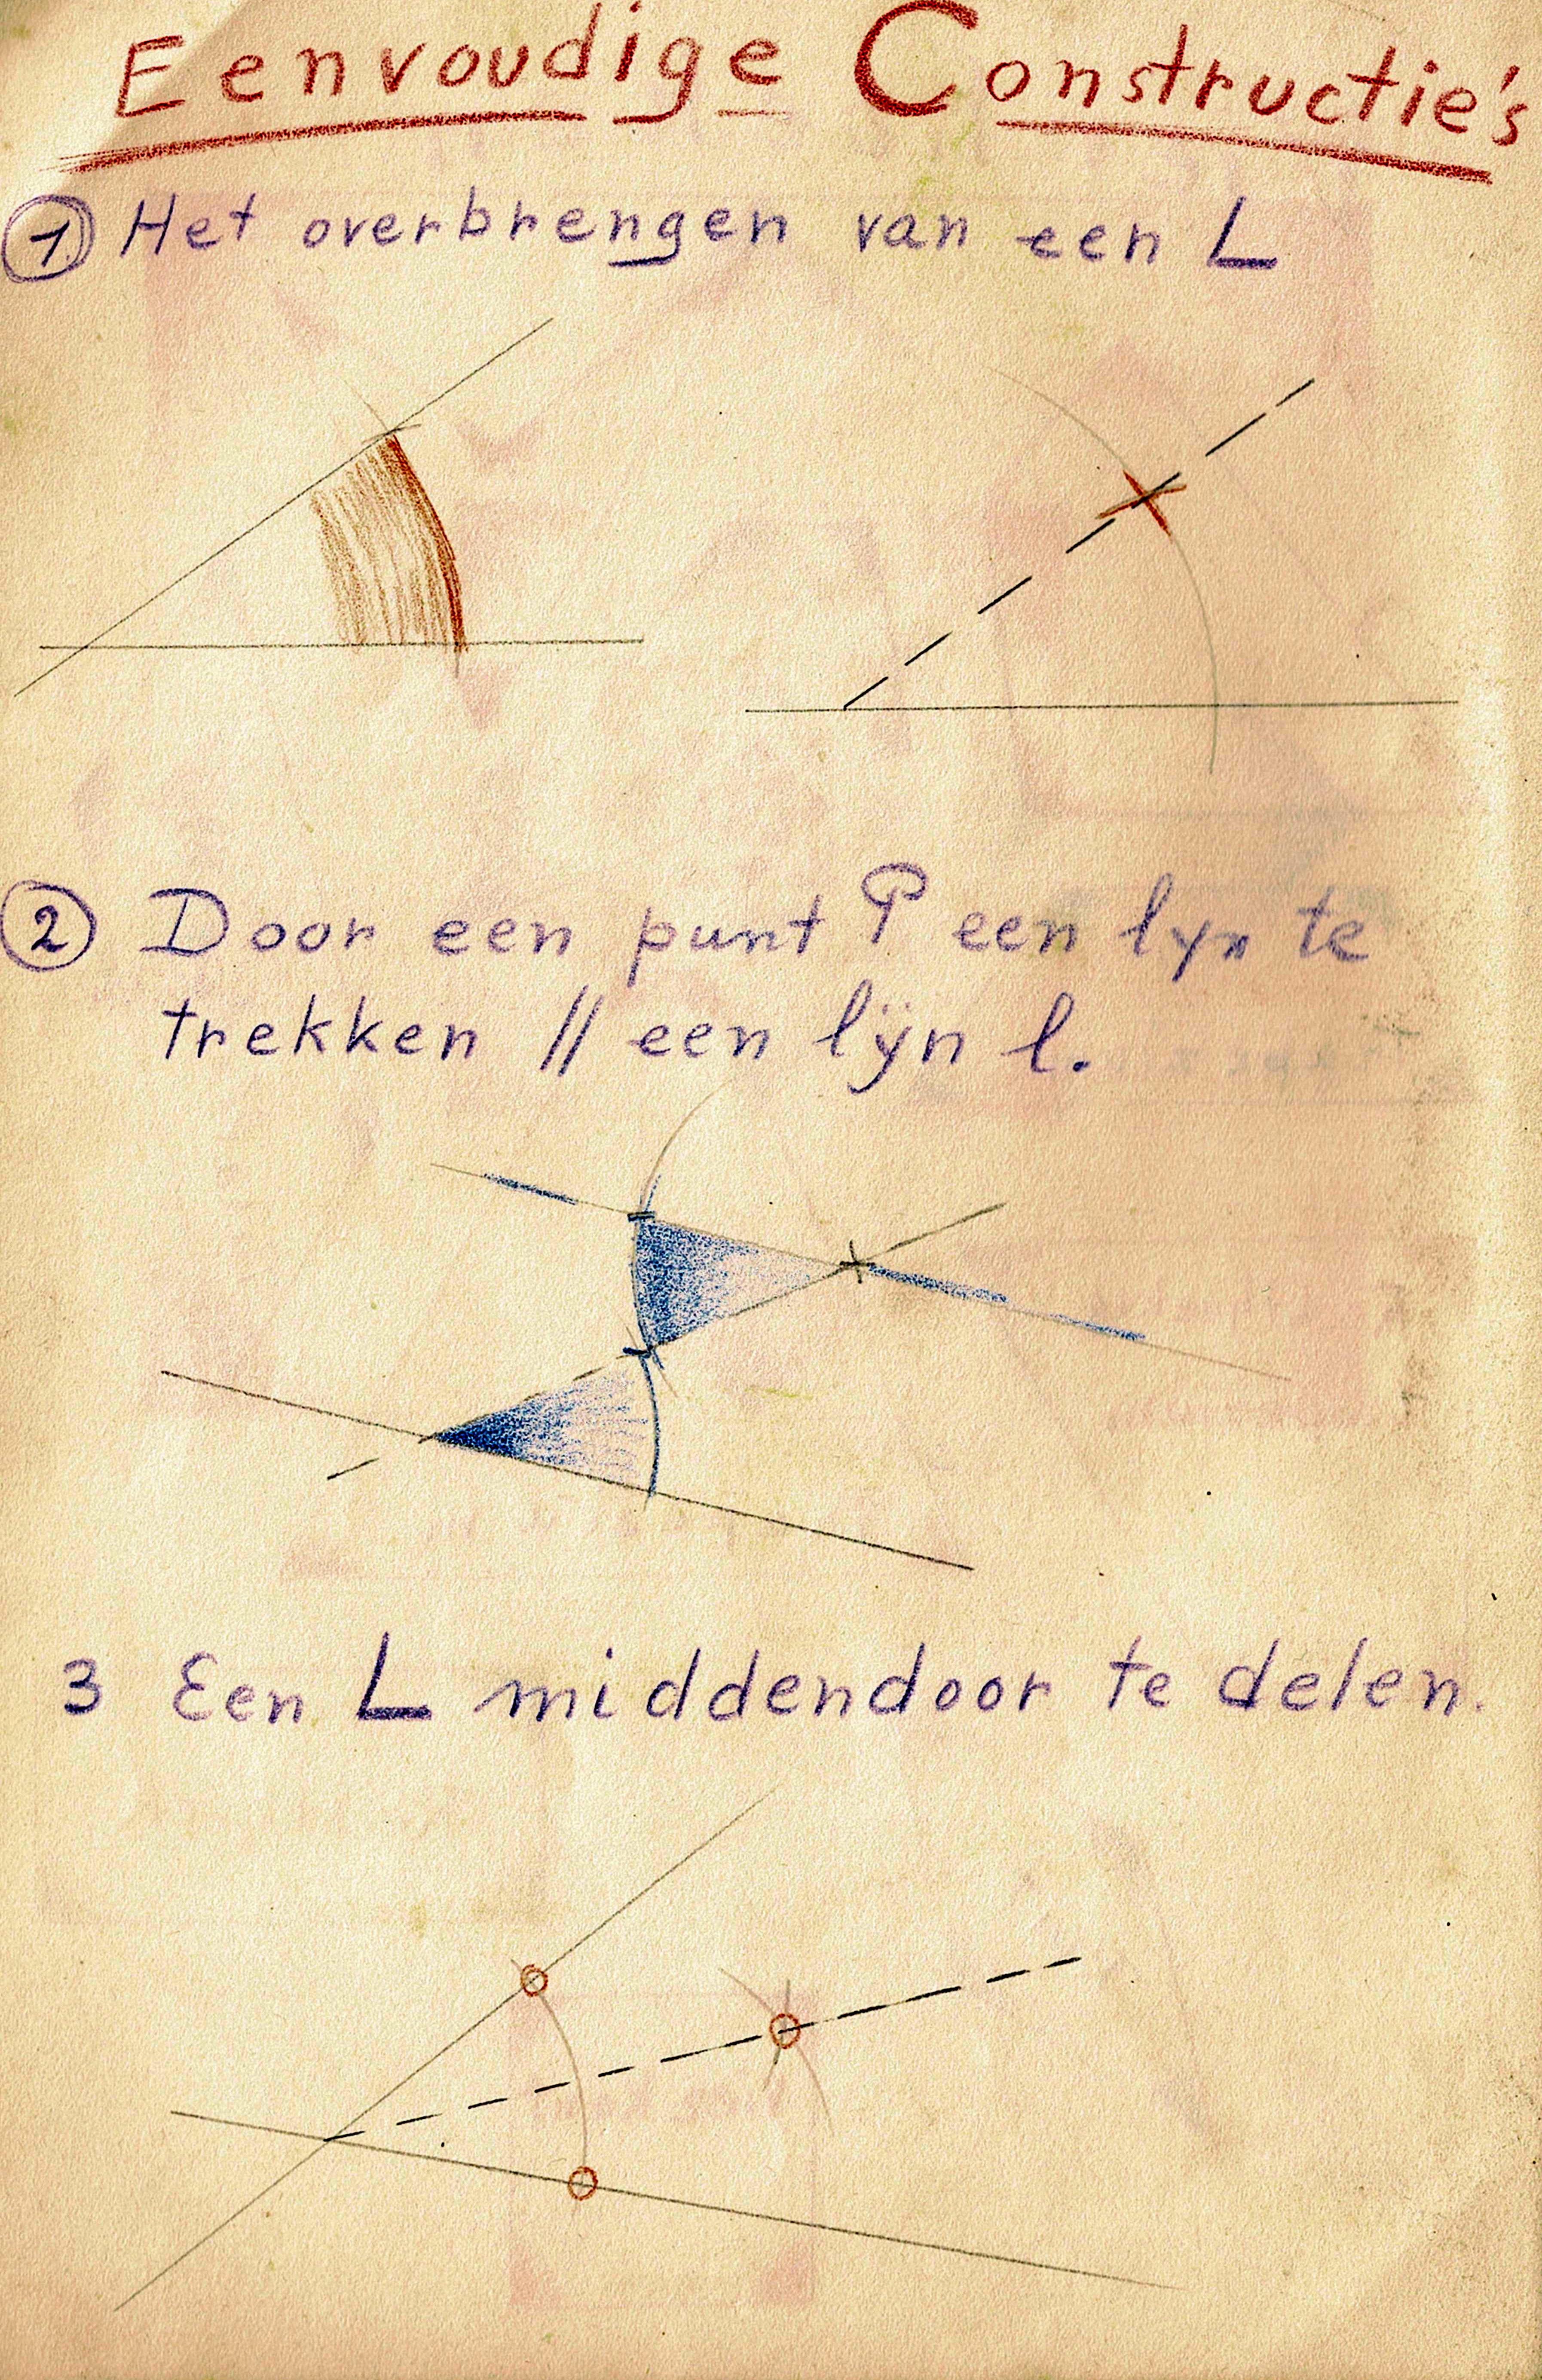 Eenvoudige Constructie's
1. Het overbrengen van een L
2 Door een punt P een lyn te
trekken // een lÿn l.
3 Een L middendoor te delen.